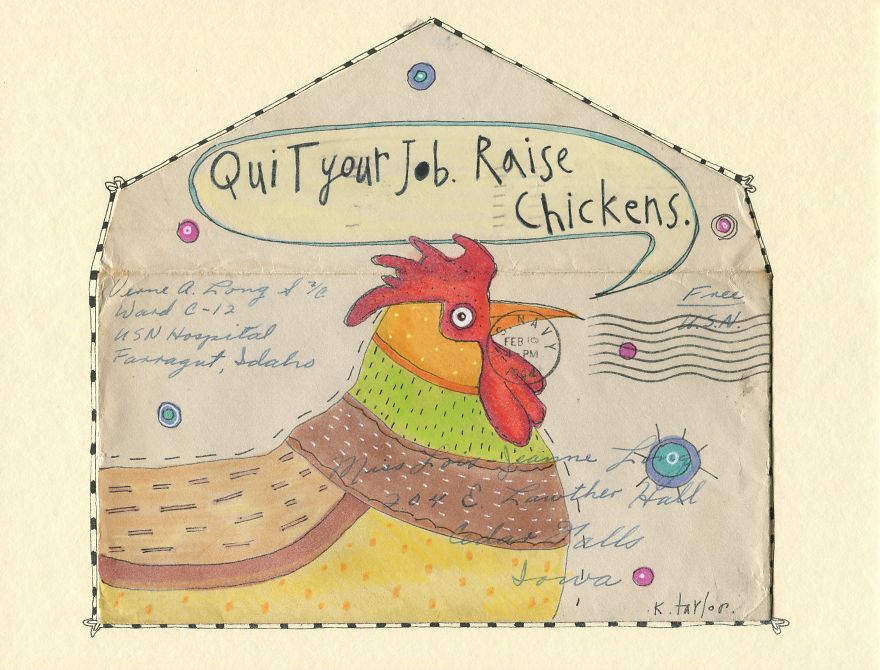 Quit your Job. Raise
Chickens.
Verne A. Long S 2/C
Ward C-12
USN Hospital
Farragut, Idaho
Free
U.S.N.
NAVY
FEB
PM
Miss Jeanne Long
204 E. Lawther Hall
Cedar Falls
Iowa
K. taylor.